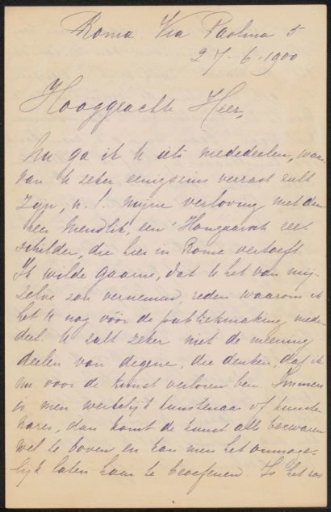 Roma Via Paolina 5
27-6-1900
Hooggeachte Heer,
Nu ga ik U iets mededeelen, waar
van U zeker eenigszins verrast zult
zijn, n.l. mijne verloving met den
heer Mendlik, een Hongaarsch zee
schilder, die hier in Rome vertoeft
Ik wilde gaarne, dat U het van mij
zelve zou vernemen, reden waarom ik
het U nog vóór de publiekmaking mede
deel. U zult zeker niet de meening
deelen van degene, die denken, dat ik
nu voor de kunst verloren ben. Immers
is men werkelijk kunstenaar of kunste
nares, dan komt de kunst alle bezwaren
wel te boven en kan men het onmoge-
lijk laten haar te beoefenen. Is het zoo